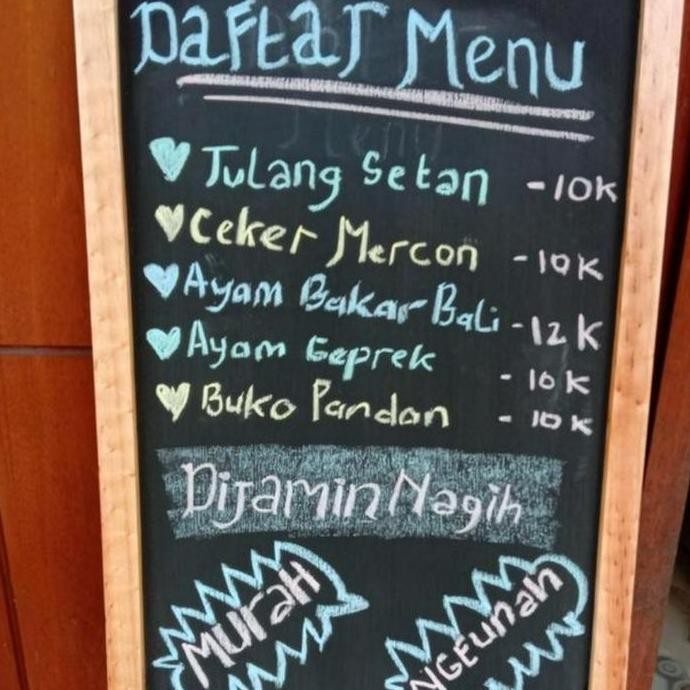 Daftar Menu
Tulang Setan - 10K
Ceker Mercon - 10K
Ayam Bakar Bali - 12K
Ayam Geprek - 10K
Buko Pandan - 10K
Dijamin Nagih
MURAH
NGEUNAH